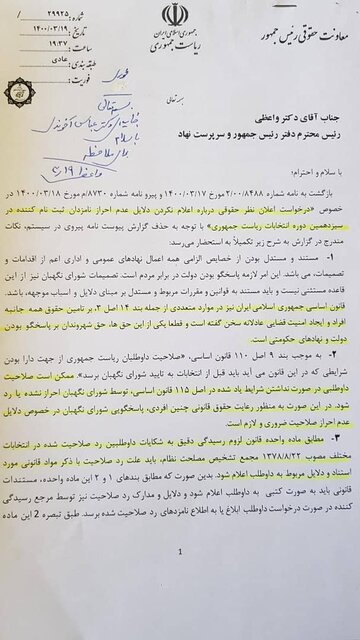 جمهوری اسلامی ایران
ریاست جمهوری
معاونت حقوقی رئیس جمهور
شماره: ۲۹۹۲۵
تاریخ: ۱۴۰۰/۰۳/۱۹
ساعت: ۱۹:۳۷
طبقه بندی: عادی
فوریت:
بسمه تعالی
جناب آقای دکتر واعظی
رئیس محترم دفتر رئیس جمهور و سرپرست نهاد
با سلام و احترام؛
بازگشت به نامه شماره ۲/۰۰/۸۴۸۸ مورخ ۱۴۰۰/۰۳/۱۷ و پیرو نامه شماره ۸۷۳۰/م مورخ ۱۴۰۰/۰۳/۱۸ در
خصوص «درخواست اعلان نظر حقوقی درباره اعلام نکردن دلایل عدم احراز نامزدان ثبت نام کننده در
سیزدهمین دوره انتخابات ریاست جمهوری» با توجه به حذف گزارش پیوست نامه پیروی در سیستم، نکات
مندرج در گزارش به شرح زیر تکمیلاً به استحضار می‌رسد:
۱- مستند و مستدل بودن از خصایص الزامی همه اعمال نهادهای عمومی و اداری اعم از اقدامات و
تصمیمات، می باشد. این امر لازمه پاسخگو بودن دولت در برابر مردم است. تصمیمات شورای نگهبان نیز از این
قاعده مستثنی نیست و باید مستند به قوانین و مقررات مربوط و مستدل بر مبنای دلایل و اسباب موجهه، باشد.
قانون اساسی جمهوری اسلامی ایران نیز در موارد متعددی از جمله بند ۱۴ اصل ۳، بر تامین حقوق همه جانبه
افراد و ایجاد امنیت قضایی عادلانه سخن گفته است و قطعا یکی از این حق ها، حق شهروندان بر پاسخگو بودن
دولت و نهادهای حکومتی است.
۲- به موجب بند ۹ اصل ۱۱۰ قانون اساسی، «صلاحیت داوطلبان ریاست جمهوری از جهت دارا بودن
شرایطی که در این قانون می آید باید قبل از انتخابات به تایید شورای نگهبان برسد». ممکن است صلاحیت
داوطلبی در صورت نداشتن شرایط یاد شده در اصل ۱۱۵ قانون اساسی، توسط شورای نگهبان احراز نشده یا رد
شود. در این صورت به منظور رعایت حقوق قانونی چنین افردی، پاسخگویی شورای نگهبان در خصوص دلایل
عدم احراز صلاحیت ضروری و لازم است.
۳- مطابق ماده واحده قانون لزوم رسیدگی دقیق به شکایات داوطلبین رد صلاحیت شده در انتخابات
مختلف مصوب ۱۳۷۸/۸/۲۲ مجمع تشخیص مصلحت نظام، باید علت رد صلاحیت با ذکر مواد قانونی مورد
استناد و دلایل مربوط به داوطلب اعلام شود. بدین صورت که مطابق بندهای ۱ و ۲ این ماده واحده، مستندات
قانونی باید به صورت کتبی به داوطلب اعلام شود و دلایل و مدارک رد صلاحیت نیز توسط مرجع رسیدگی
کننده در صورت درخواست داوطلب ابلاغ یا به اطلاع نامزدهای رد صلاحیت شده برسد. طبق تبصره 2 این ماده
1